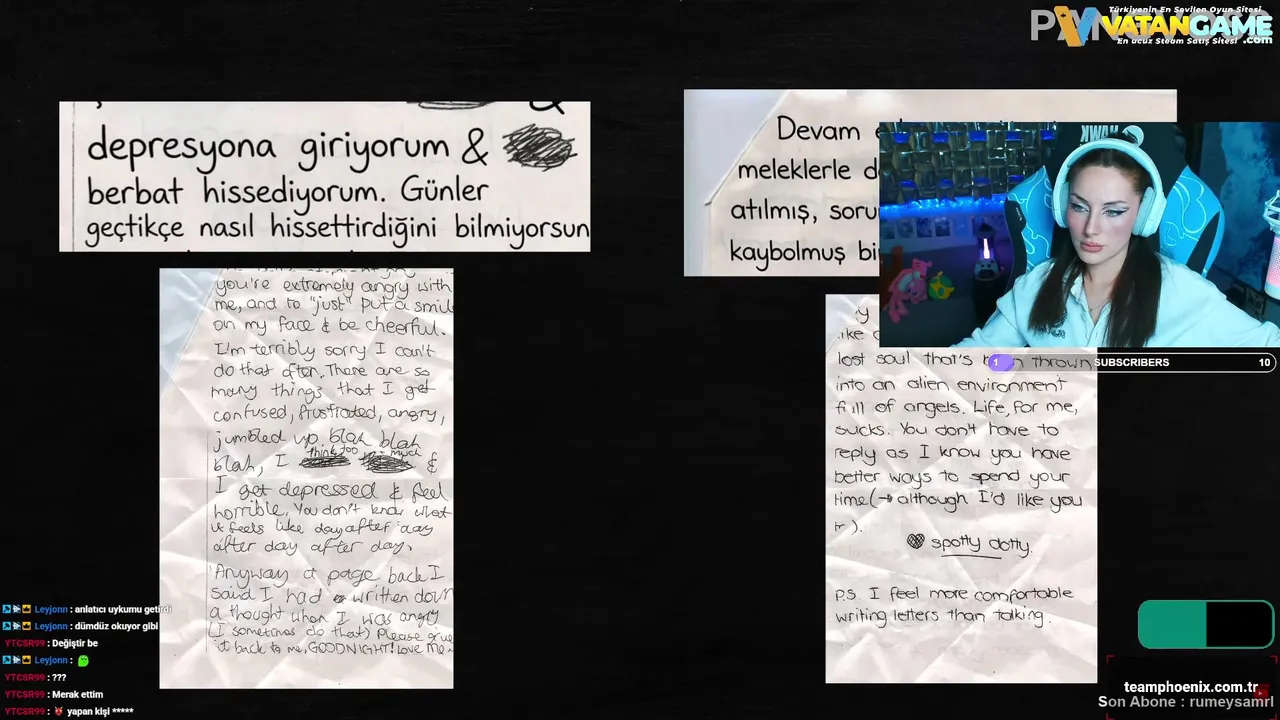 Türkiyenin En Sevilen Oyun Sitesi
VATANGAME
.com
En ucuz Steam Satış Sitesi
&
depresyona giriyorum &
berbat hissediyorum. Günler
geçtikçe nasıl hissettirdiğini bilmiyorsun
Devam
meleklerle
atılmış,
kaybolmuş
you're extremely angry with
me, and to "just" put a
on my face & be cheerful.
I'm terribly sorry I can't
do that often. There are so
many things that I get
confused, frustrated, angry,
jumbled up blah blah
think too much
blah, I &
I get depressed & feel
horrible. You don't know what
it feels like day after day
after day after day.
Anyway a page back I
said I had written down
a thought when I was angry
(I sometimes do that) Please give
it back to me, GOODNIGHT! Love me
like
lost soul that's thrown
into an alien environment
full of angels. Life, for me,
sucks. You don't have to
reply as I know you have
better ways to spend your
time (→ although I'd like you
spotty dotty
P.S. I feel more comfortable
writing letters than talking.
HAWK
1 SUBSCRIBERS 10
Leyjonn : anlatıcı uykumu getirdi
Leyjonn : dümdüz okuyor gibi
YTCSR99 : Değiştir be
Leyjonn :
YTCSR99 : ???
YTCSR99 : Merak ettim
YTCSR99 : yapan kişi *****
teamphoenix.com.tr
Son Abone : rumeysamrl